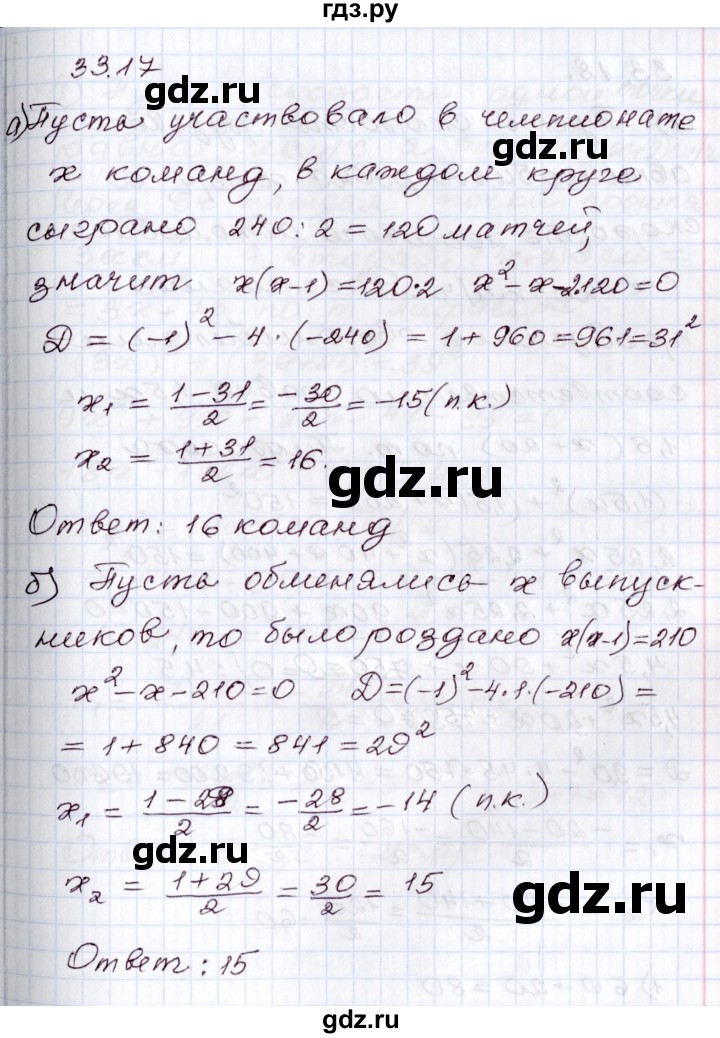 гдз.ру
33.17
а) Пусть участвовало в чемпионате
gdz.ru
x команд, в каждом круге
сыграно 240:2=120 матчей,
значит x(x-1)=120·2 x²-x-2·120=0
Д = (-1)² - 4·(-240) = 1+960=961=31²
x₁ = (1-31)/2 = -30/2 = -15 (п.к.)
x₂ = (1+31)/2 = 16.
gdz.ru
Ответ: 16 команд
б) Пусть обменялись x выпуск-
ников, то было роздано x(x-1)=210
x²-x-210=0 Д=(-1)²-4·1·(-210)=
= 1+840 = 841 = 29²
x₁ = (1-29)/2 = -28/2 = -14 (п.к.)
gdz.ru
x₂ = (1+29)/2 = 30/2 = 15
gdz.ru
Ответ: 15
gdz.ru